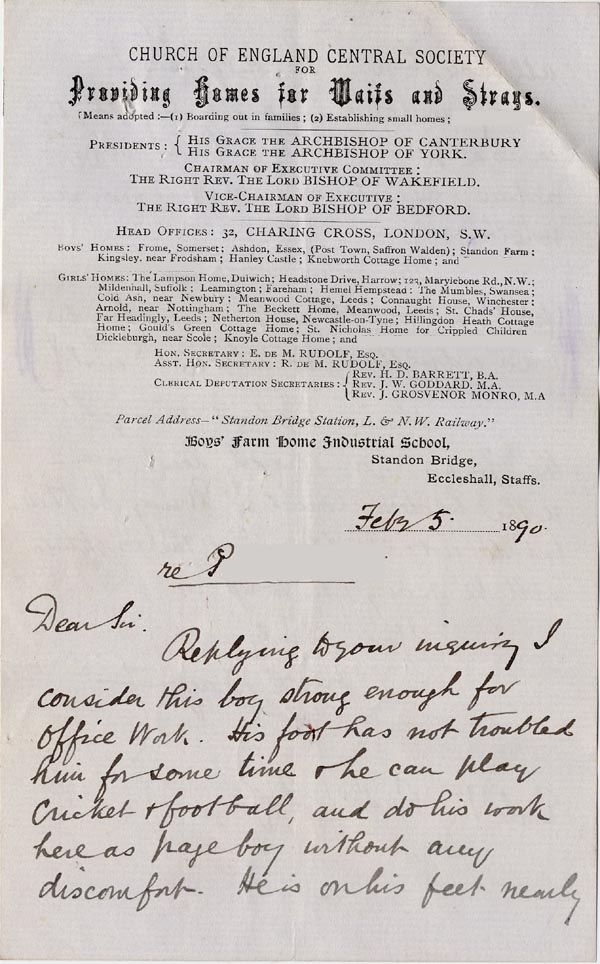 CHURCH OF ENGLAND CENTRAL SOCIETY
FOR
Providing Homes for Waifs and Strays.
Means adopted:—(1) Boarding out in families; (2) Establishing small homes;
PRESIDENTS: { HIS GRACE THE ARCHBISHOP OF CANTERBURY
HIS GRACE THE ARCHBISHOP OF YORK.
CHAIRMAN OF EXECUTIVE COMMITTEE:
THE RIGHT REV. THE LORD BISHOP OF WAKEFIELD.
VICE-CHAIRMAN OF EXECUTIVE:
THE RIGHT REV. THE LORD BISHOP OF BEDFORD.
HEAD OFFICES: 32, CHARING CROSS, LONDON, S.W.
BOYS' HOMES: Frome, Somerset; Ashdon, Essex, (Post Town, Saffron Walden); Standon Farm;
Kingsley, near Frodsham; Hanley Castle; Knebworth Cottage Home; and
GIRLS' HOMES: The Lampson Home, Dulwich; Headstone Drive, Harrow; 123, Marylebone Rd., N.W.;
Mildenhall, Suffolk; Leamington; Fareham; Hemel Hempstead: The Mumbles, Swansea;
Cold Ash, near Newbury: Meanwood Cottage, Leeds; Connaught House, Winchester:
Arnold, near Nottingham; The Beckett Home, Meanwood, Leeds; St. Chads' House,
Far Headingly, Leeds; Netherton House, Newcastle-on-Tyne; Hillingdon Heath Cottage
Home; Gould's Green Cottage Home; St. Nicholas Home for Crippled Children
Dickleburgh, near Scole; Knoyle Cottage Home; and
HON. SECRETARY: E. DE M. RUDOLF, ESQ.
ASST. HON. SECRETARY: R. DE M. RUDOLF, ESQ.
CLERICAL DEPUTATION SECRETARIES: { REV. H. D. BARRETT, B.A.
REV. J. W. GODDARD, M.A.
REV. J. GROSVENOR MONRO, M.A
Parcel Address—"Standon Bridge Station, L. & N. W. Railway."
Boys' Farm Home Industrial School,
Standon Bridge,
Eccleshall, Staffs.
Feby 5. 1890.
re P
Dear Sir.
Replying to your inquiry I
consider this boy strong enough for
Office Work. His foot has not troubled
him for some time & he can play
Cricket & football, and do his work
here as page boy without any
discomfort. He is on his feet nearly